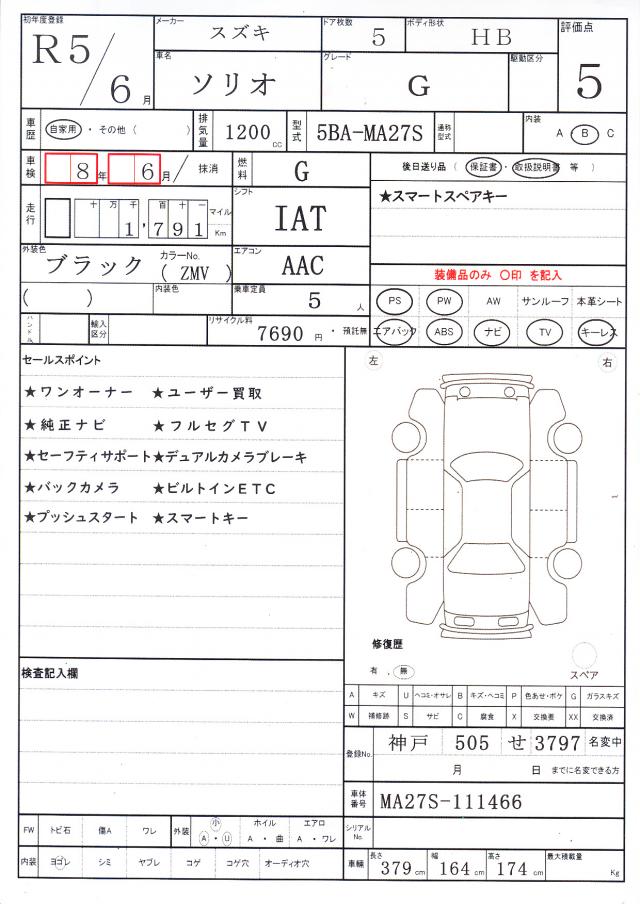 初年度登録 R5/6月
メーカー スズキ
ドア枚数 5
ボディ形状 HB
評価点 5
車名 ソリオ
グレード G
駆動区分
車歴 自家用・その他（ ）
排気量 1200cc
型式 5BA-MA27S
通称型式
内装 A・B C
車検 8年 6月/ 抹消
燃料 G
後日送り品（保証書・取扱説明書 等）
★スマートスペアキー
走行 十 万 千 百 十 一 マイル Km
1,791
シフト IAT
外装色 ブラック カラーNo. (ZMV)
エアコン AAC
装備品のみ 〇印 を記入
( ) 内装色
乗車定員 5人
PS PW AW サンルーフ 本革シート
エアバック ABS ナビ TV キーレス
ハンドル 輸入区分 リサイクル料 7690円・預託無
セールスポイント
★ワンオーナー ★ユーザー買取
★純正ナビ ★フルセグTV
★セーフティサポート★デュアルカメラブレーキ
★バックカメラ ★ビルトインETC
★プッシュスタート ★スマートキー
左 右
修復歴
有 . 無
スペア
検査記入欄
A キズ U ヘコミ・オサレ B キズ・ヘコミ P 色あせ・ボケ G ガラスキズ
W 補修跡 S サビ C 腐食 X 交換要 XX 交換済
登録No. 神戸 505 せ 3797 名変中
月 日 までに名変できる方
車体番号 MA27S-111466
シリアルNo.
FW トビ石 傷A ワレ 外装 小 A・U ホイル A・曲 エアロ A・ワレ
内装 ヨゴレ シミ ヤブレ コゲ コゲ穴 オーディオ穴
車輛 長さ 379cm 幅 164cm 高さ 174cm 最大積載量 Kg